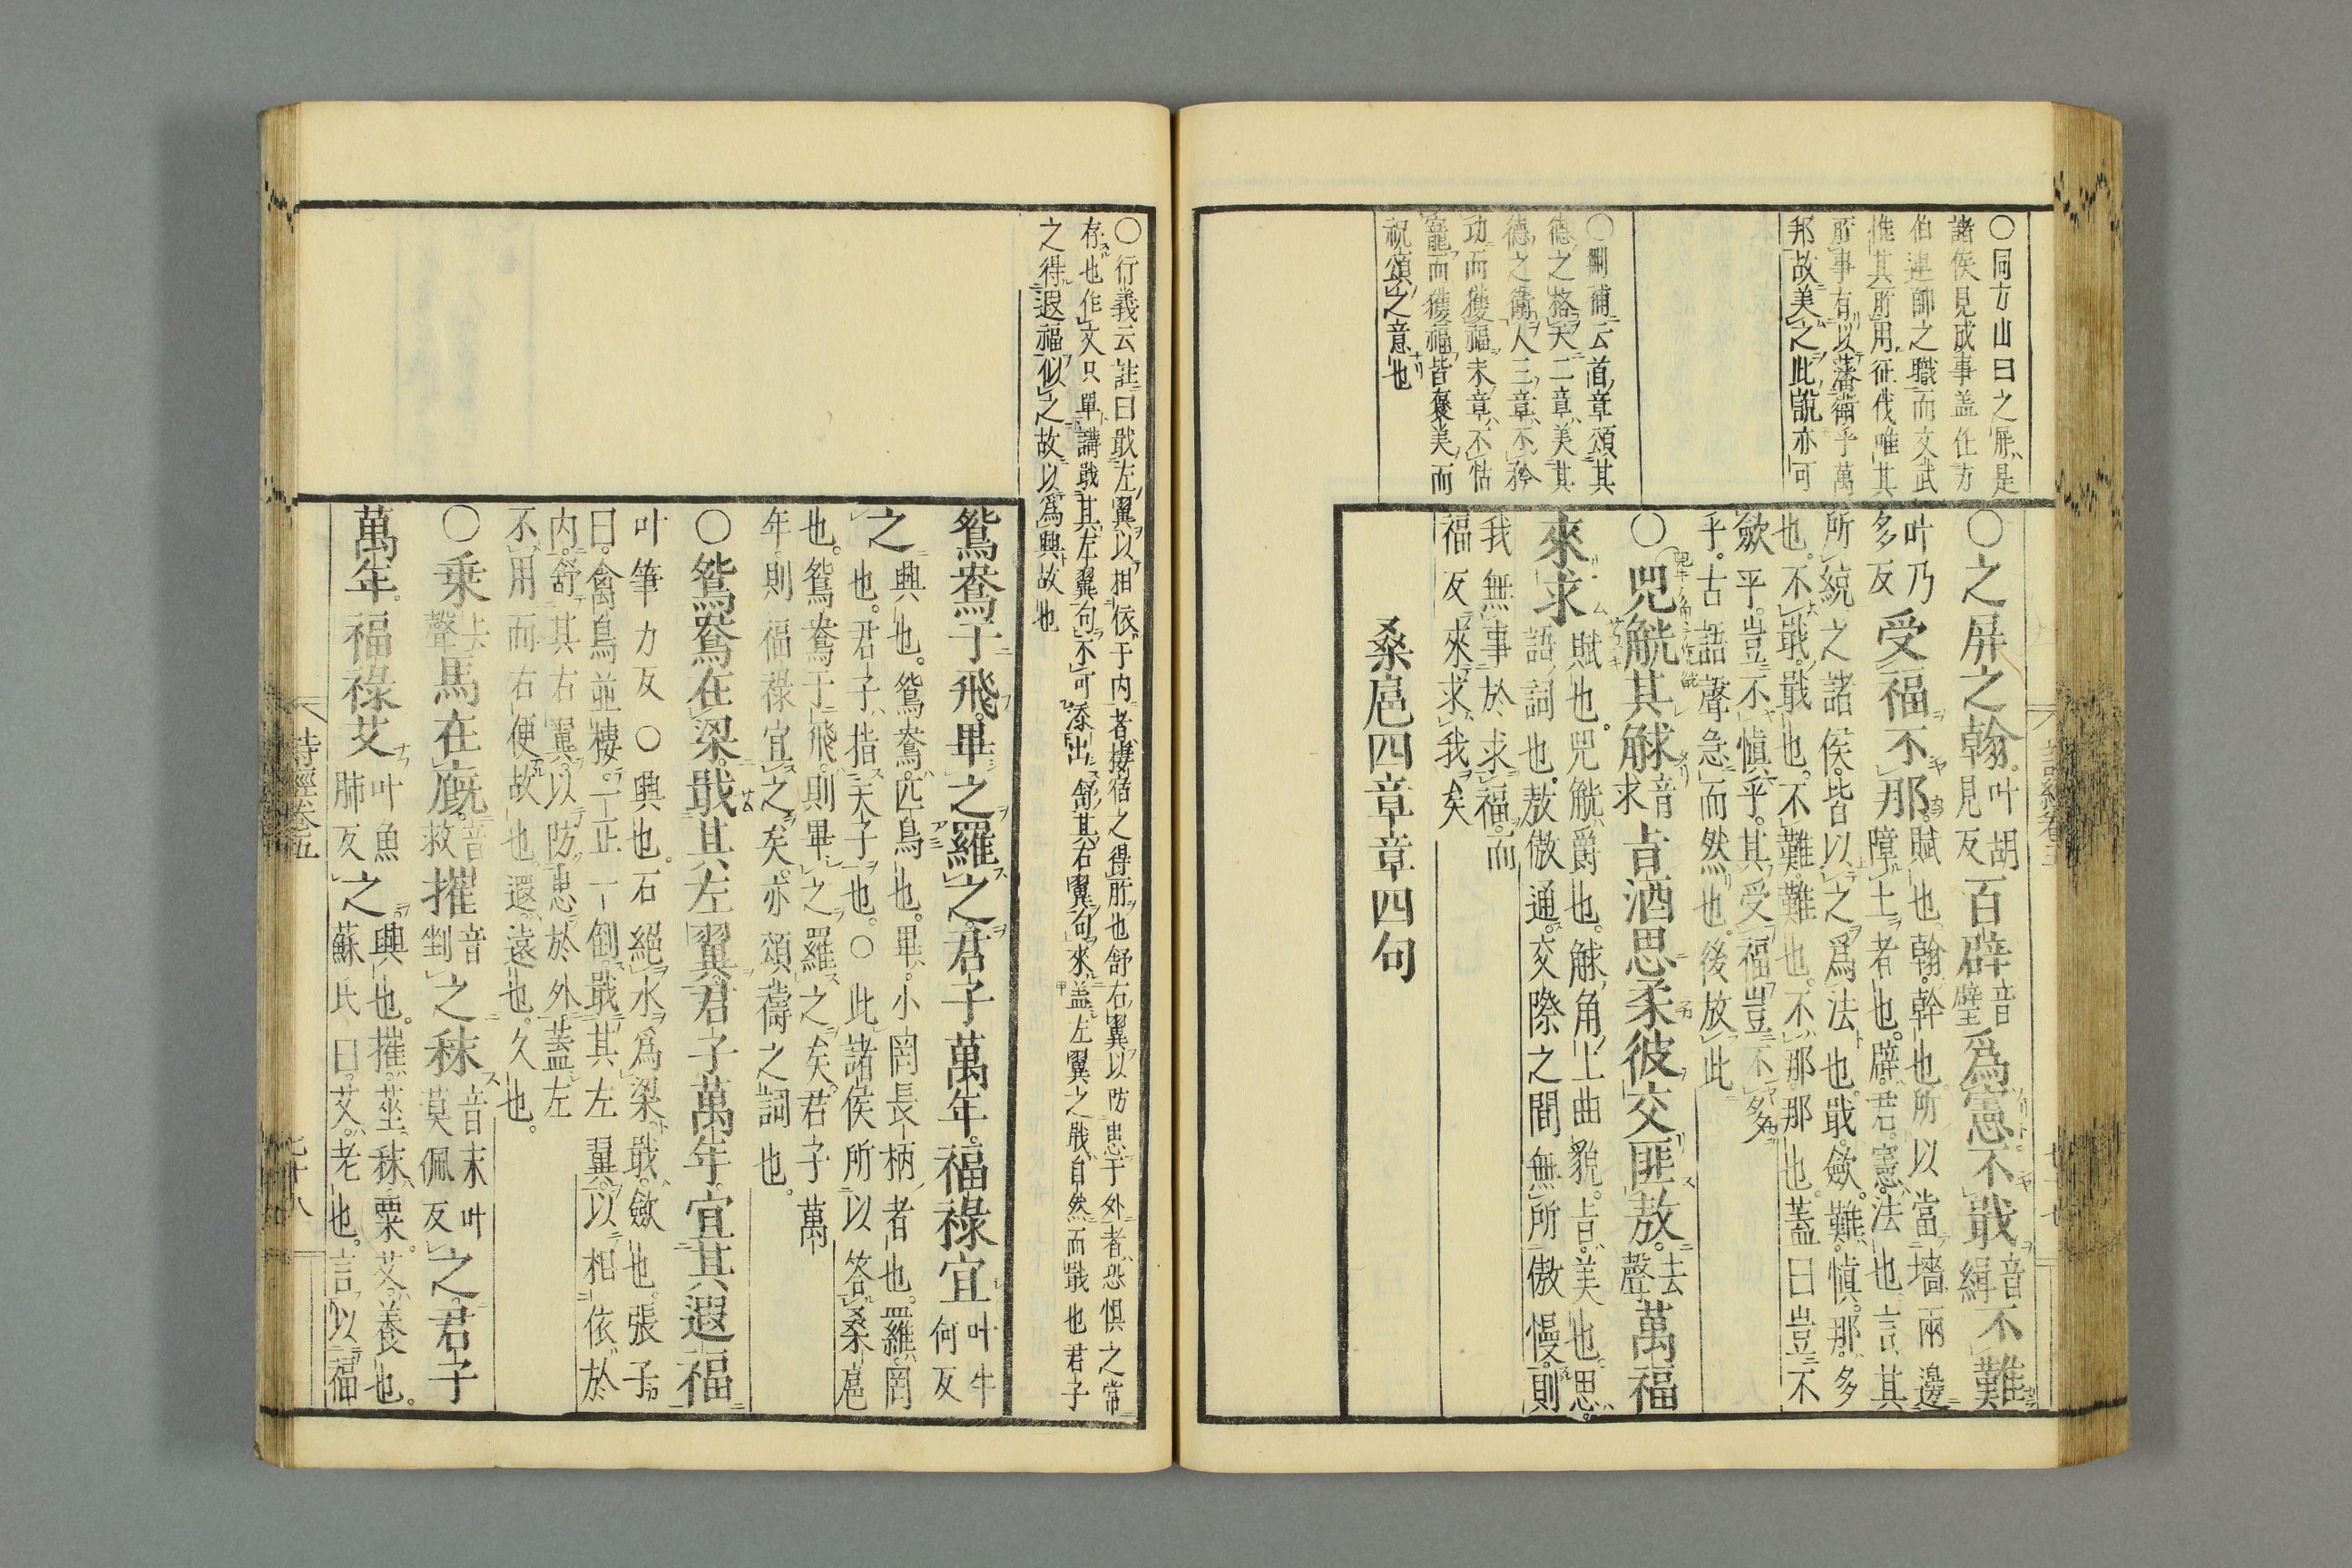 〇同方山曰之屏是
諸侯見成事蓋任方
伯連帥之職而文武
惟其所用征伐唯其
所事有以藩衞乎萬
邦故美之此説亦可
〇刪補云首章頌其
德之格天二章美其
德之衞人三章不矜
功而獲福末章不怙
寵而獲福皆褒美而
祝頌之意也
〇之屏之翰叶胡見反百辟音璧爲憲不戢音緝不難
叶乃多反受福不那賦也翰幹也所以當墻兩邊
障土者也辟君憲法也言其
所統之諸侯皆以之爲法也戢歛難愼那多
也不戢戢也不難難也不那那也蓋曰豈不
歛乎豈不愼乎其受福豈不多
乎古語聲急而然也後放此
〇兕觥其觩音求旨酒思柔彼交匪敖去聲萬福
來求賦也兕觥爵也觩角上曲貌旨美也思
語詞也敖傲通交際之間無所傲慢則
我無事於求福而
福反來求我矣
桑扈四章章四句
〇行義云註曰戢左翼以相依于内者棲宿之得所也舒右翼以防患于外者恐懼之常
存也作文只單講戢其左翼句不可添出舒其右翼句來蓋左翼之戢自然而戢也君子
之得遐福似之故以爲興故也
鴛鴦于飛畢之羅之君子萬年福祿宜叶牛何反
之興也鴛鴦匹鳥也畢小罔長柄者也羅罔
也君子指天子也〇此諸侯所以答桑扈
也鴛鴦于飛則畢之羅之矣君子萬
年則福祿宜之矣亦頌禱之詞也
〇鴛鴦在梁戢其左翼君子萬年宜其遐福
叶筆力反〇興也石絕水爲梁戢歛也張子
曰禽鳥並棲一正一倒戢其左翼以相依於
内舒其右翼以防患於外蓋左
不用而右便故也遐遠也久也
〇乘去聲馬在廄音救摧音剉之秣音末叶莫佩反之君子
萬年福祿艾叶魚肺反之興也摧莝秣粟艾養也
蘇氏曰艾老也言以福
詩經卷五
七十八